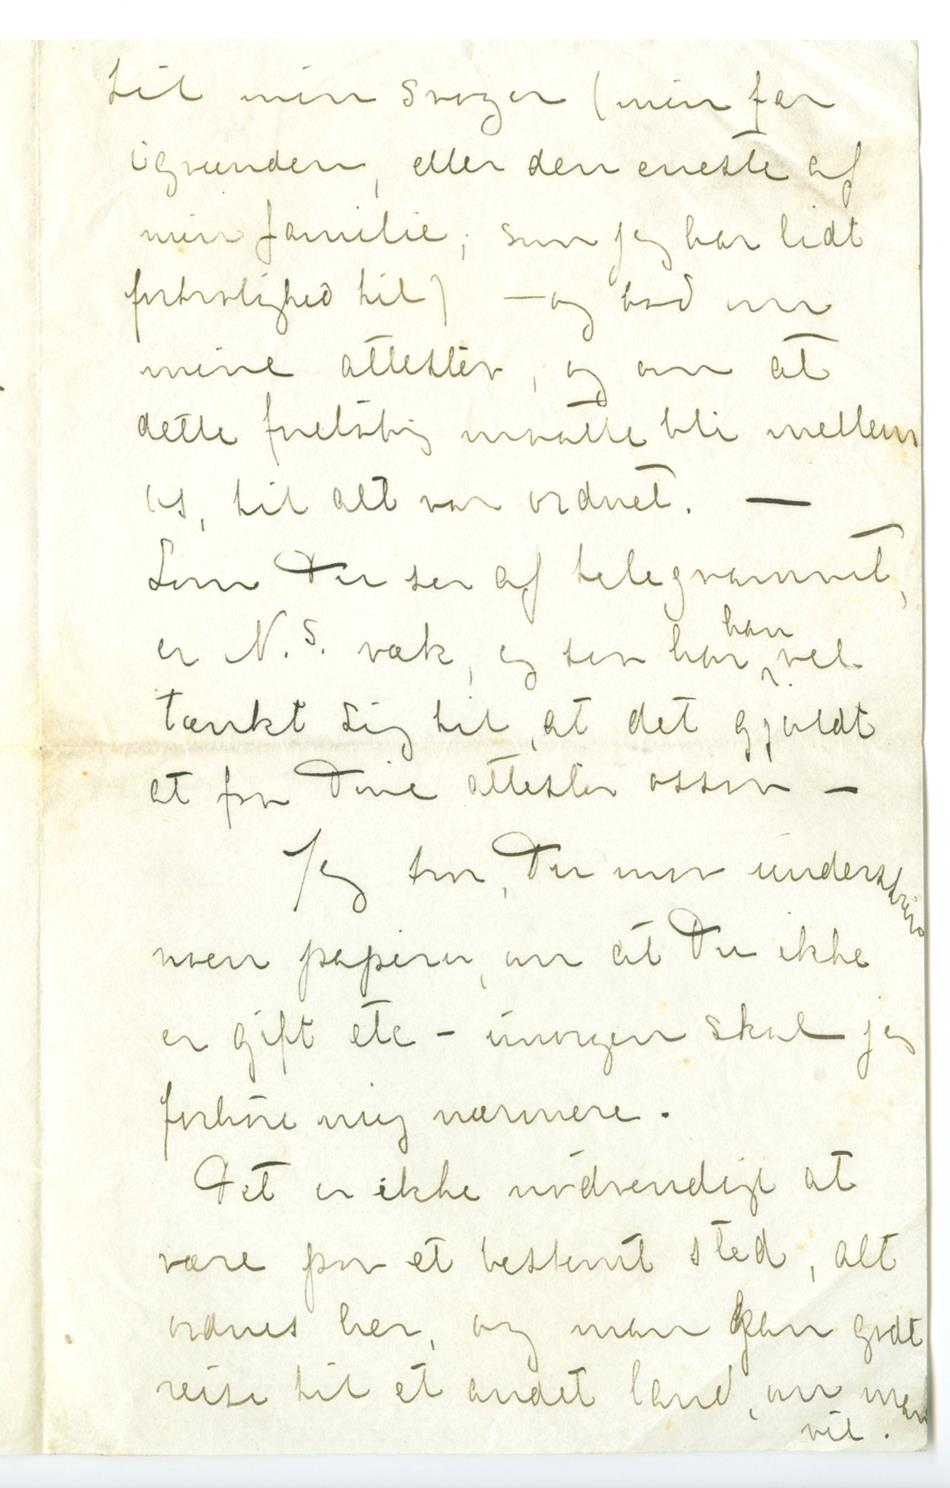 til min svoger (min far
igrunden, eller den eneste af
min familie, som jeg har lidt
fortrolighed til) — og bad om
mine attester, og om at
dette foreløbig måtte bli mellem
os, til alt var ordnet. —
Som Du ser af telegrammet,
er N.S. væk, og så har han vel
tænkt sig til, at det gjaldt
at få Dine attester også —
Jeg tror, Du må underskrive
noen papirer, om at Du ikke
er gift etc – imorgen skal jeg
forhøre mig nærmere.
Det er ikke nødvendigt at
være på et bestemt sted, alt
ordnes her, og man kan godt
reise til et andet land, om man
vil.